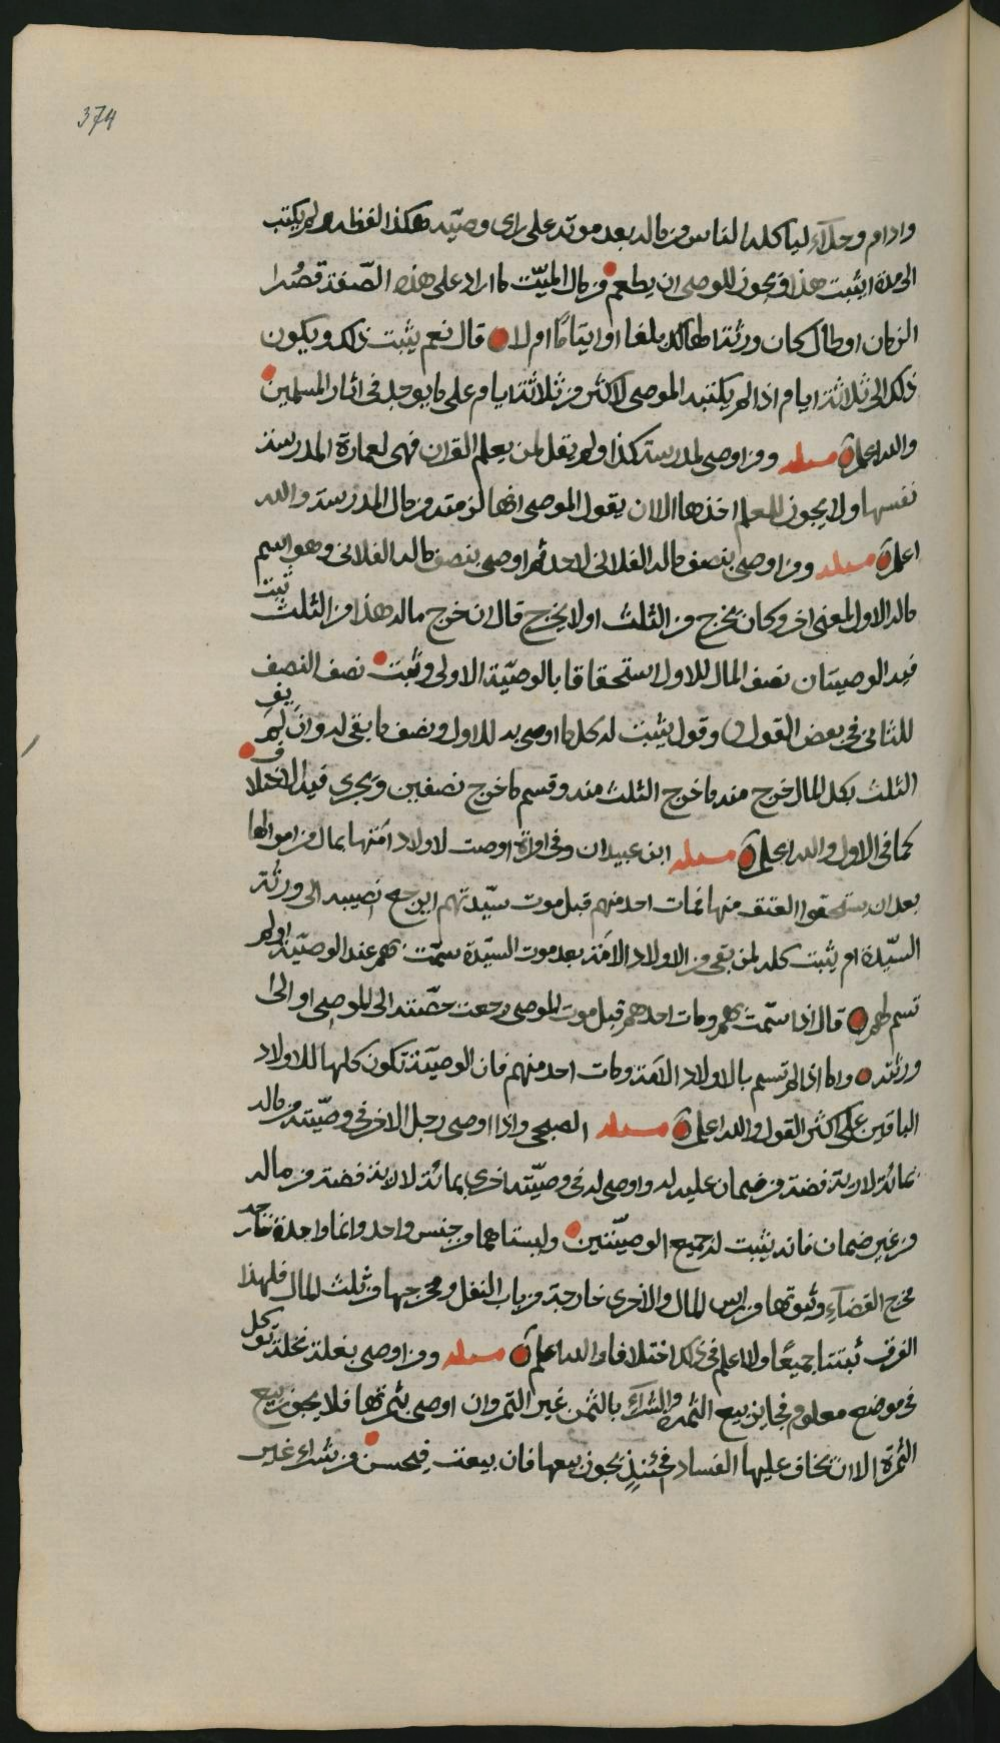 374
وادام وحلاء لياكله الناس من ماله بعد موته على راي وصيّه هكذا لفظه ولم يكتب
الى مدة ايثبت هذا ويجوز للوصي ان يطعم من مال الميّت ما اراد على هذه الصّفة قصُرا
الزمان او طال كان ورثة الهالك بلغا او ايتامًا ام لا قال نعم يثبت ذلك ويكون
ذلك الى ثلاثة ايام اذا لم يكتبه الموصي لاكثر من ثلاثة ايام على ما يوجد في اثار المسلمين
والله اعلم مسئله ومن اوصى لمدرسة كذا ولم يقل لمن يعلم القران فهي لعمارة المدرسة
نفسها ولا يجوز للمعلم اخذها الا ان يقول الموصي انها لزمته من مال المدرسة والله
اعلم مسئله ومن اوصى بنصف ماله الفلاني لاحد ثم اوصى بنصف ماله الفلاني وهو اسم
ماله الاول لمعنى اخر وكان يخرج من الثلث او لا يخرج قال ان خرج ماله هذا من الثلث ثبت
فيه الوصيتان نصف المال للاول استحقاقا بالوصيّة الاولى وثبت نصف النصف
للثاني في بعض القول وقول يثبت له كل ما اوصى به للاول ونصف ما بقي له وان لم يف
الثلث بكل المال خرج منه ما خرج الثلث منه وقسم ما خرج نصفين ويجري فيه الاختلاف
كما في الاول والله اعلم مسئله ابن عبيدان وفي امراة اوصت لاولاد امتها بمال من اموالها
بعد ان يستحقوا العتق منها فمات احد منهم قبل موت سيّدتهم ايرجع نصيبه الى ورثة
السيّدة ام يثبت كله لمن بقي من الاولاد الامة بعد موت السيّدة سمّت بهم عند الوصيّة او لم
تسم بهم قال اذا سمّت بهم ومات احدهم قبل موت الموصي رجعت حصّته الى الموصي او الى
ورثته واما اذا لم تسم بالاولاد الامة ومات احد منهم فان الوصيّة تكون كلها للاولاد
الباقين على اكثر القول والله اعلم مسئله الصبحي واذا اوصى رجل لاخر في وصيّته من ماله
بمائة لارية فضة من ضمان عليه له واوصى له في وصيّته اخرى بمائة لارية فضة من ماله
من غير ضمان فانه يثبت له جميع الوصيّتين وليستا هما من جنس واحد وانما واحدة خارجة
مخرج القضاء وثبوتها من راس المال والاخرى خارجة من باب النفل ومخرجها من ثلث المال فلهذا
الفرق ثبتتا جميعًا ولا اعلم في ذلك اختلافا والله اعلم مسئله ومن اوصى بغلة نخلة تؤكل
في موضع معلوم فجايز بيع الثمرة والشراء بالثمن غير التمر وان اوصى بثمرتها فلا يجوز بيع
الثمرة الا ان يخاف عليها الفساد فحينئذٍ يجوز بيعها فان بيعت فيحسن من يشراء غلس